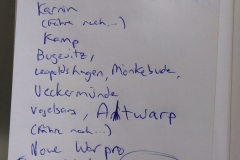 Karnin
(Fähre nach...)
Kamp
Bugewitz,
Leopoldshagen, Mönkebude,
Ueckermünde
Vogelsang, Altwarp
(Fähre nach...)
Neuwarpno